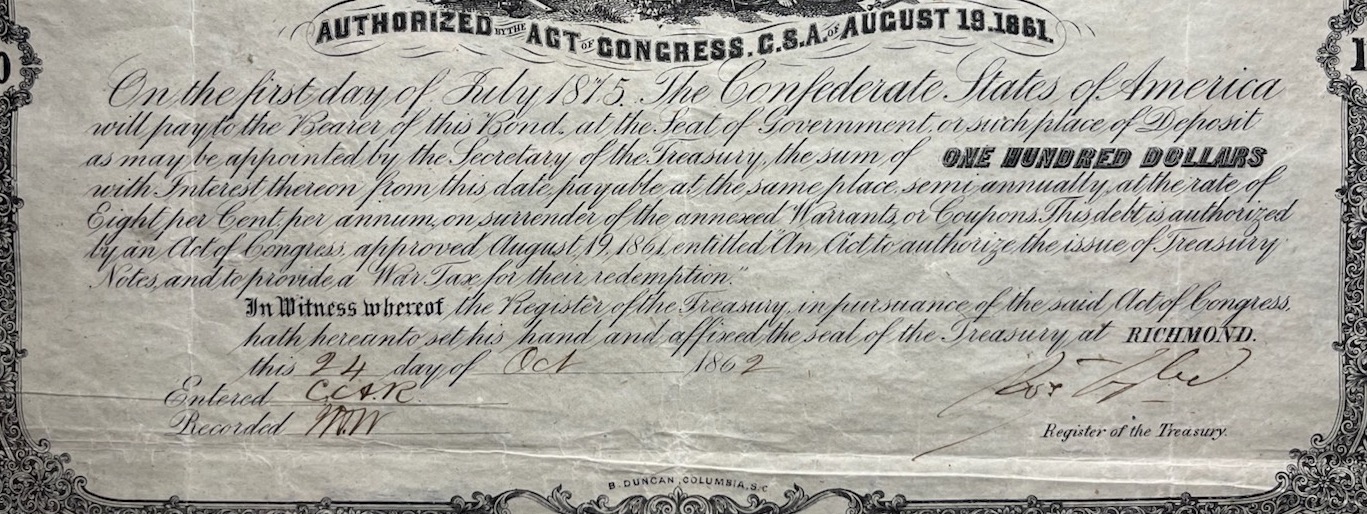 AUTHORIZED BY THE ACT OF CONGRESS. C.S.A. OF AUGUST 19.1861.
On the first day of July 1875. The Confederate States of America
will pay to the Bearer of this Bond, at the Seat of Government, or such place of Deposit
as may be appointed by the Secretary of the Treasury, the sum of ONE HUNDRED DOLLARS
with Interest thereon from this date, payable at the same place, semi annually, at the rate of
Eight per Cent. per annum, on surrender of the annexed Warrants, or Coupons. This debt is authorized
by an Act of Congress, approved August, 19, 1861, entitled "An Act to authorize the issue of Treasury
Notes, and to provide a War Tax, for their redemption."
In Witness whereof the Register of the Treasury, in pursuance of the said Act of Congress,
hath hereunto set his hand and affixed the seal of the Treasury at RICHMOND.
this 24 day of Oct 1862
Entered
Recorded
Register of the Treasury.
B. DUNCAN, COLUMBIA, S.C